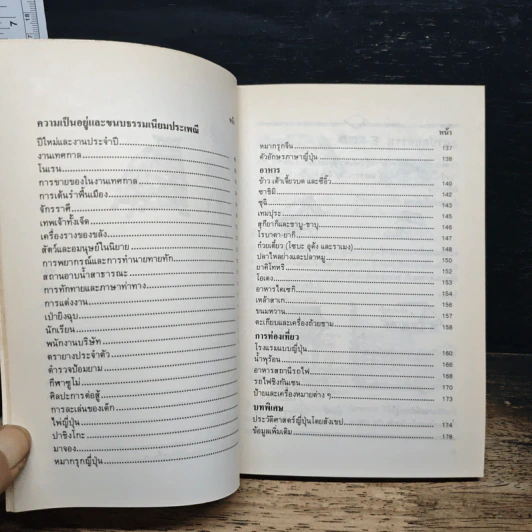 7
ความเป็นอยู่และขนบธรรมเนียมประเพณี
ปีใหม่และงานประจำปี
งานเทศกาล
โนเรน
การขายของในงานเทศกาล
การเต้นรำพื้นเมือง
จักรราศี
เทพเจ้าทั้งเจ็ด
เครื่องรางของขลัง
สัตว์และอมนุษย์ในนิยาย
การพยากรณ์และการทำนายทายทัก
สถานอาบน้ำสาธารณะ
การทักทายและภาษาท่าทาง
การแต่งงาน
เป่ายิงฉุบ
นักเรียน
พนักงานบริษัท
ตรายางประจำตัว
ตำรวจป้อมยาม
กีฬาซูโม่
ศิลปะการต่อสู้
การละเล่นของเด็ก
ไพ่ญี่ปุ่น
ปาชิงโกะ
มาจอง
หมากรุกญี่ปุ่น
หน้า
หมากรุกจีน 137
ตัวอักษรภาษาญี่ปุ่น 138
อาหาร
ข้าว เต้าเจี้ยวบด และซีอิ๊ว 140
ซาชิมิ 142
ซูชิ 144
เทมปุระ 145
สุกียากิและชาบู-ชาบู 146
โรบาตา-ยากิ 147
ก๋วยเตี๋ยว (โซบะ อุด้ง และราเมง) 148
ปลาไหลย่างและปลาหมู 150
ยากิโทหริ 151
โอเดง 152
อาหารไคเซกิ 153
เหล้าสาเก 154
ขนมหวาน 157
ตะเกียบและเครื่องถ้วยชาม 158
การท่องเที่ยว
โรงแรมแบบญี่ปุ่น 160
น้ำพุร้อน 166
อาหารสถานีรถไฟ 168
รถไฟชิงกันเซน 170
ป้ายและเครื่องหมายต่าง ๆ 173
บทพิเศษ
ประวัติศาสตร์ญี่ปุ่นโดยสังเขป 174
ข้อมูลเพิ่มเติม 178